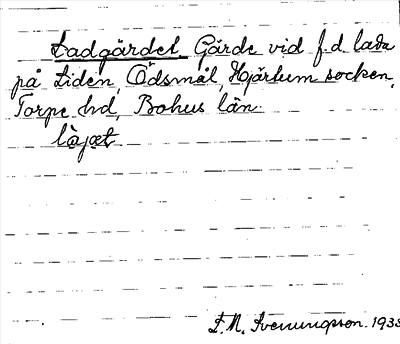 Ladgärdet. Gärde vid f.d. lada
på Liden, Ödsmål, Hjärtum socken,
Torpe hd, Bohus län.
làjæt
S.N. Svenungsson. 1938